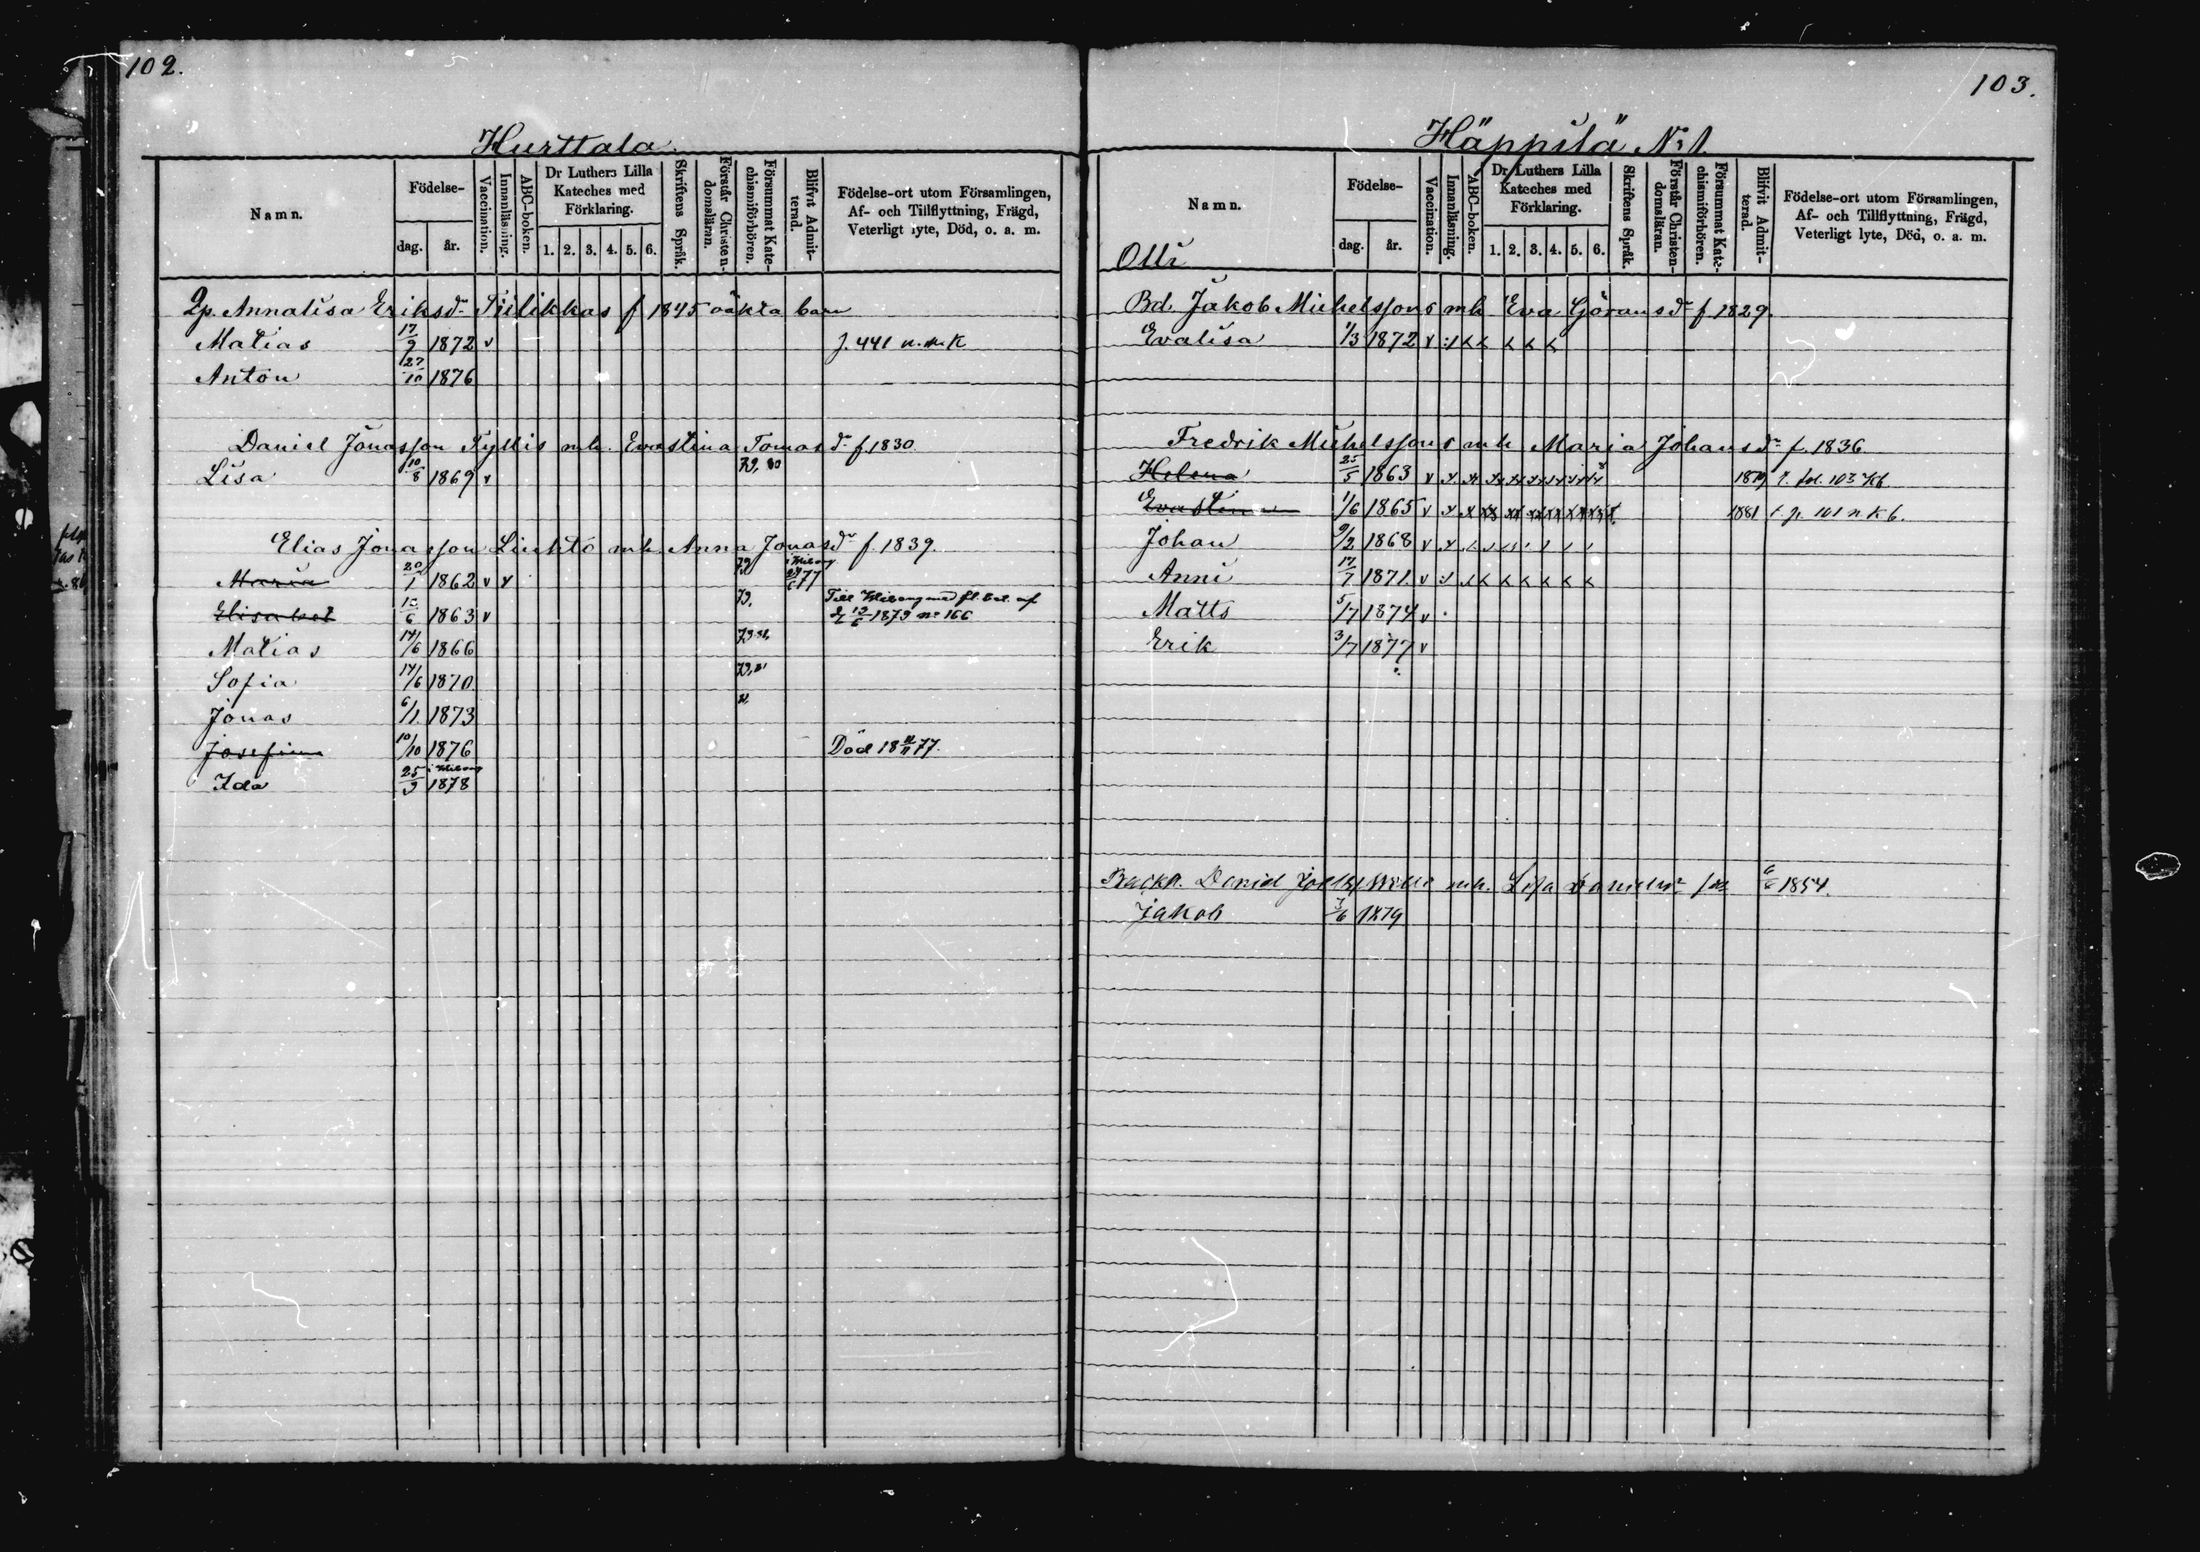 102.
Hurttala
Namn. Födelse- dag. år. Vaccination. Innanläsning. ABC-boken. Dr Luthers Lilla Kateches med Förklaring. 1. 2. 3. 4. 5. 6. Skriftens Språk. Förstår Christendomsläran. Försummat Katechismiförhören. Blifvit Admitterad. Födelse-ort utom Församlingen, Af- och Tillflyttning, Frägd, Veterligt lyte, Död, o. a. m.
Qp. Annalisa Eriksdr Tiilikkas f 1845 oäkta barn
Matias 17/9 1872 v f. 441 n. m K
Anton 27/10 1876
Daniel Jonasson Tyllis mh. Evastina Tomasdr f 1830.
Lisa 10/8 1869 v 79, 80
Elias Jonasson Liuhto mh. Anna Jonasdr f. 1839.
Maria 20/1 1862 v v 79
Elisabet 13/6 1863 v 79, Till 13/6 1879 no 166
Matias 14/6 1866
Sofia 14/6 1870
Jonas 6/1 1873
Josefina 10/10 1876 Död 18 11/11 77.
Ida 25/9 1878
103.
Häppilä No 1.
Namn. Födelse- dag. år. Vaccination. Innanläsning. ABC-boken. Dr Luthers Lilla Kateches med Förklaring. 1. 2. 3. 4. 5. 6. Skriftens Språk. Förstår Christendomsläran. Försummat Katechismiförhören. Blifvit Admitterad. Födelse-ort utom Församlingen, Af- och Tillflyttning, Frägd, Veterligt lyte, Död, o. a. m.
Olli
Bd. Jakob Michelssons mh Eva Göransdr f 1829.
Evalisa 1/3 1872 v
Fredrik Michelssons mh Maria Johansdr f. 1836
Helena 25/5 1863 v 1879 f. fol. 103 Kb
Evastina 1/6 1865 v 1881 f. p. 101 n K b.
Johan 9/2 1868 v
Anni 17/7 1871 v
Matts 5/7 1874 v
Erik 3/7 1877 v
Daniel mh. Lisa 1854.
Jakob 3/6 1879